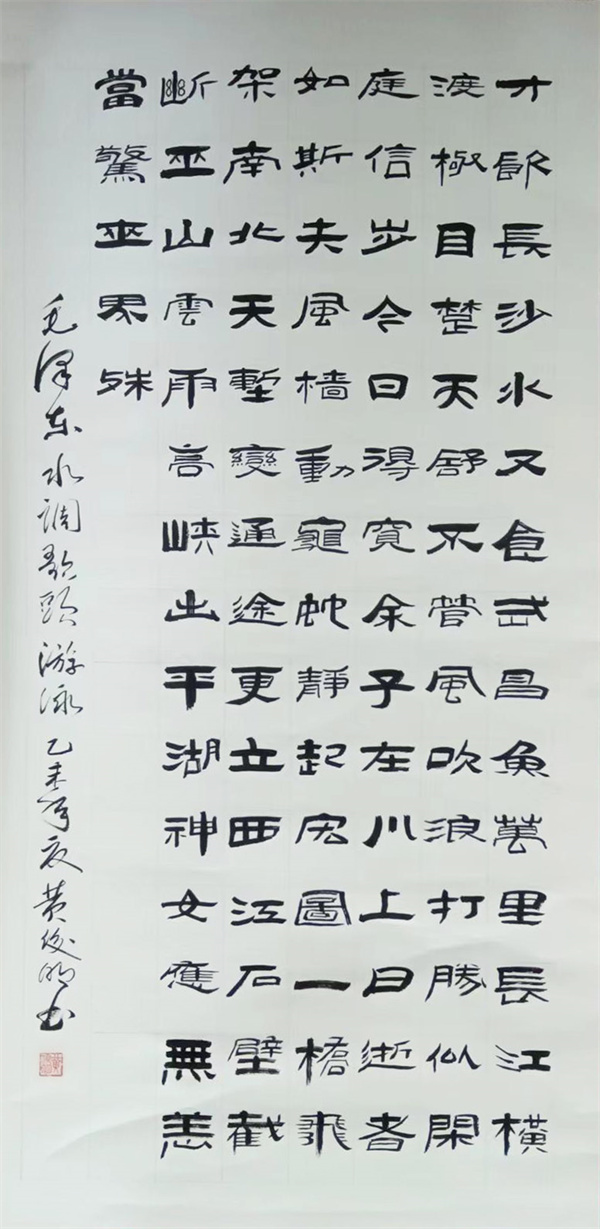 才飲長沙水又食武昌魚萬里長江橫
渡極目楚天舒不管風吹浪打勝似閑
庭信步今日得寬余子在川上曰逝者
如斯夫風檣動龜蛇靜起宏圖一橋飛
架南北天塹變通途更立西江石壁截
斷巫山雲雨高峽出平湖神女應無恙
當驚世界殊
毛澤东水調歌頭游泳乙未年夏黄俊明书